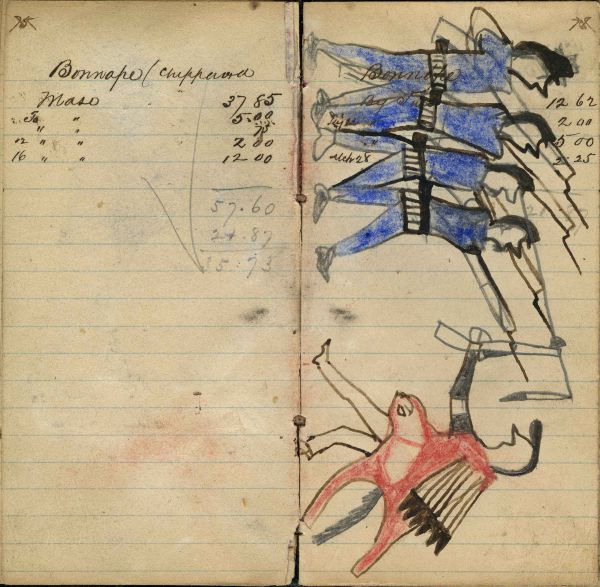 75
Bonnape (Chippewa
Maso 37 85
2 To " 5 00
" " 75
12 " " 2 00
16 " " 12 00
57.60
21.87
35.73
78
Bonnape
12 62
2 00
" 5 00
Mch 28 2 25